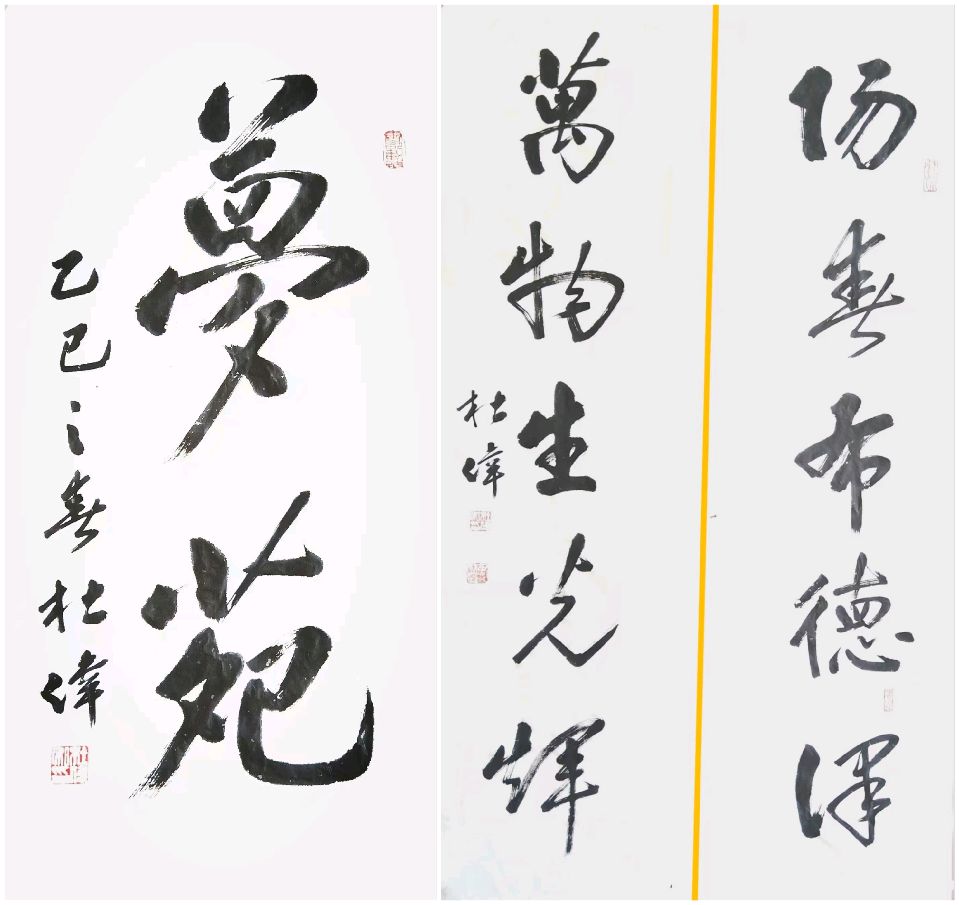 夢苑
乙巳之春杜偉
陽春布德澤
萬物生光輝
杜偉